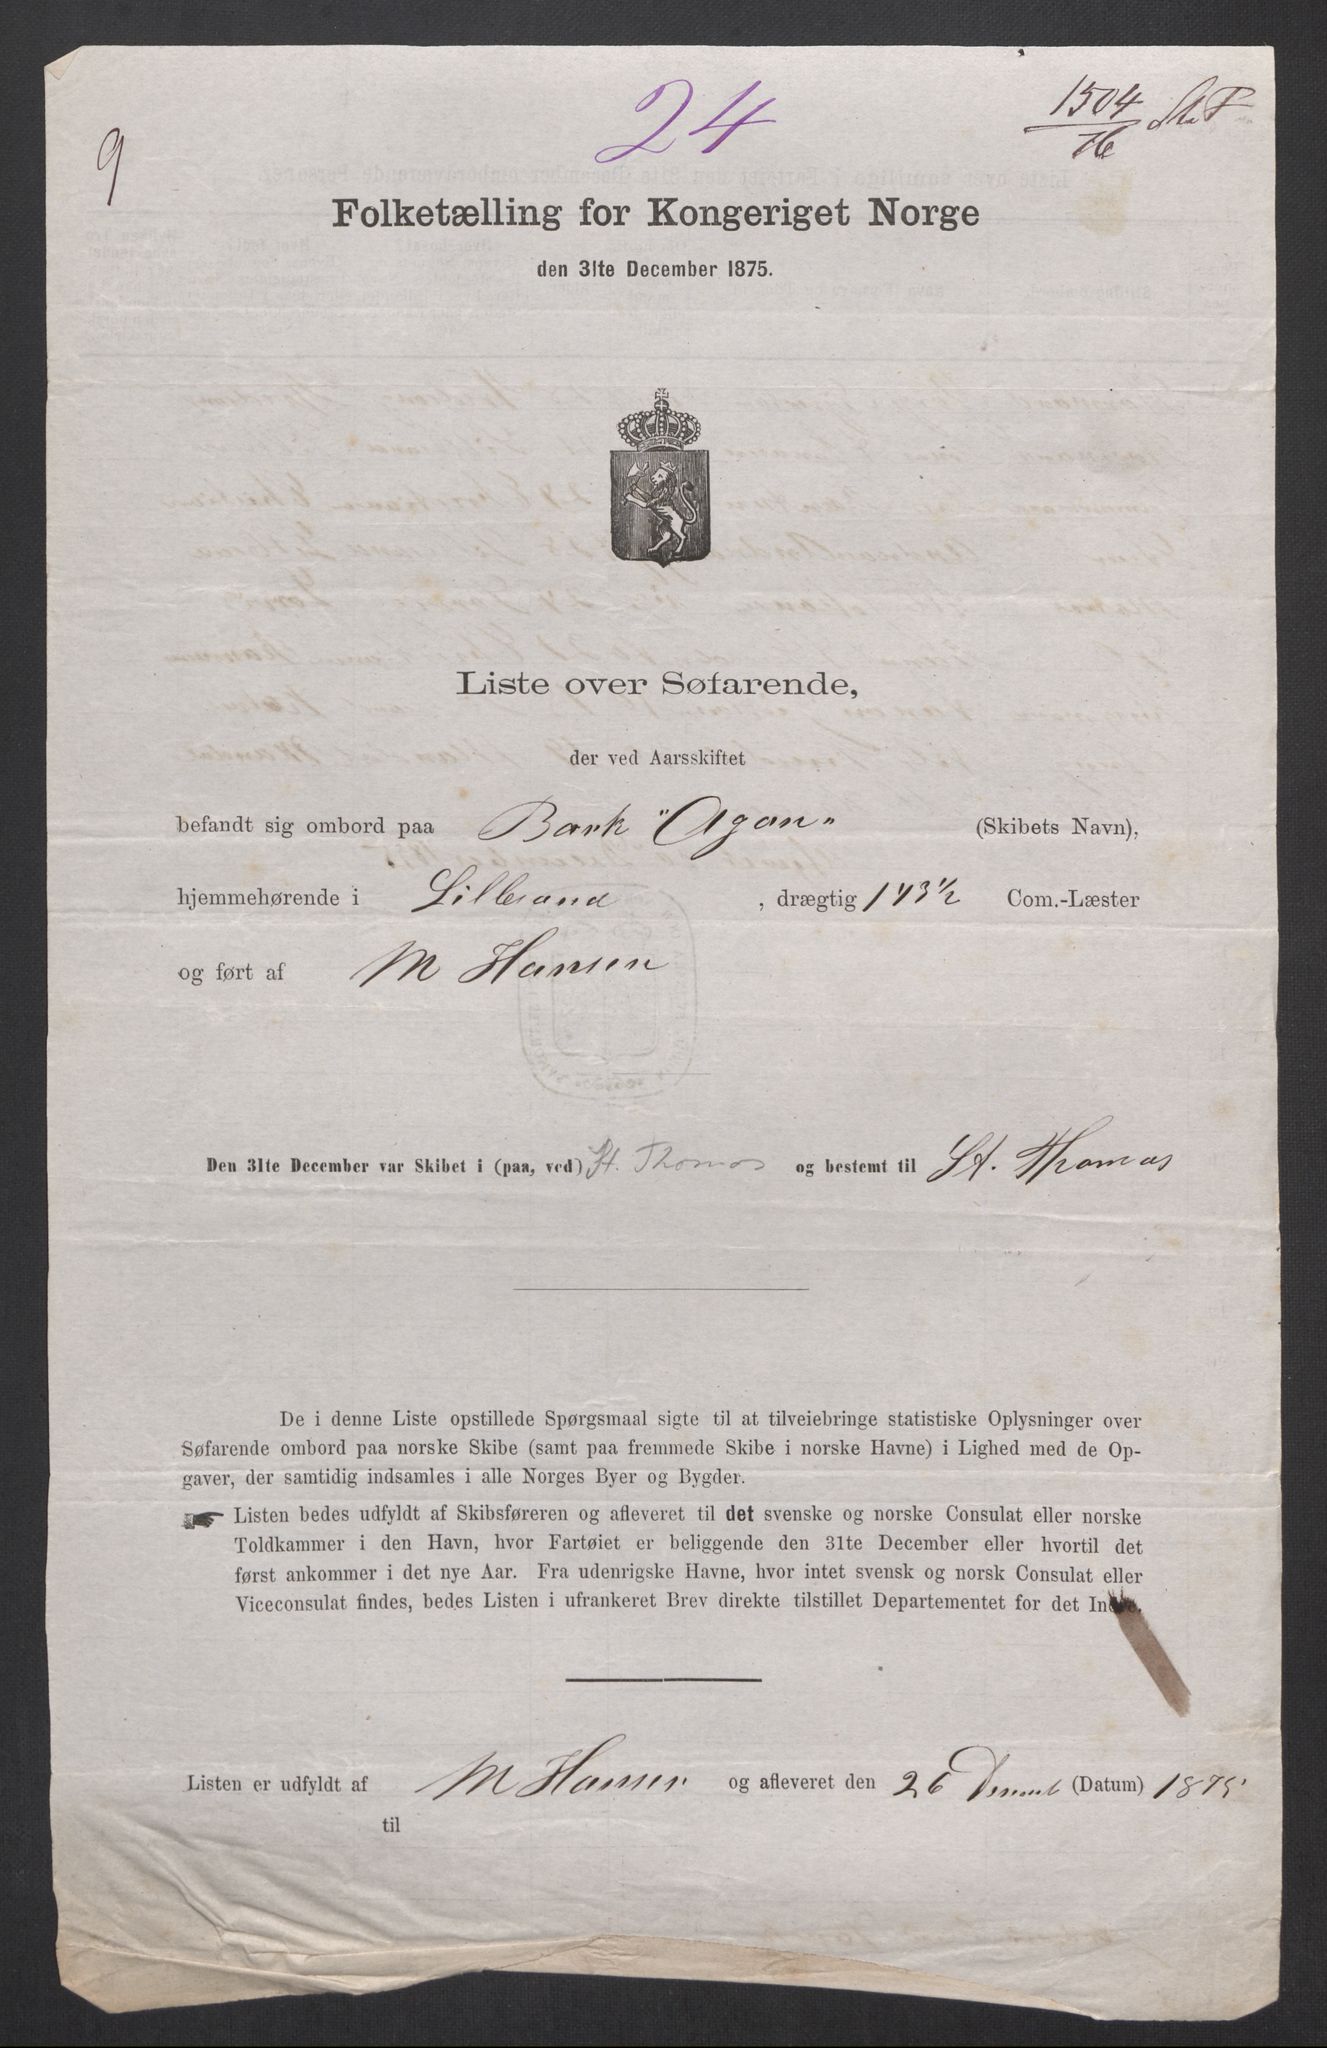 9
24
1504
76
Folketælling for Kongeriget Norge
den 31te December 1875.
Liste over Søfarende,
der ved Aarsskiftet
befandt sig ombord paa Bark "Agan" (Skibets Navn),
hjemmehørende i Lillesand, drægtig 143½ Com.-Læster
og ført af M Hansen
Den 31te December var Skibet i (paa, ved) St. Thomas og bestemt til St. Thomas
De i denne Liste opstillede Spørgsmaal sigte til at tilveiebringe statistiske Oplysninger over
Søfarende ombord paa norske Skibe (samt paa fremmede Skibe i norske Havne) i Lighed med de Op-
gaver, der samtidig indsamles i alle Norges Byer og Bygder.
Listen bedes udfyldt af Skibsføreren og afleveret til det svenske og norske Consulat eller norske
Toldkammer i den Havn, hvor Fartøiet er beliggende den 31te December eller hvortil det
først ankommer i det nye Aar. Fra udenrigske Havne, hvor intet svensk og norsk Consulat eller
Viceconsulat findes, bedes Listen i ufrankeret Brev direkte tilstillet Departementet for det Indre.
Listen er udfyldt af M Hansen og afleveret den 26 (Datum) 1875
til